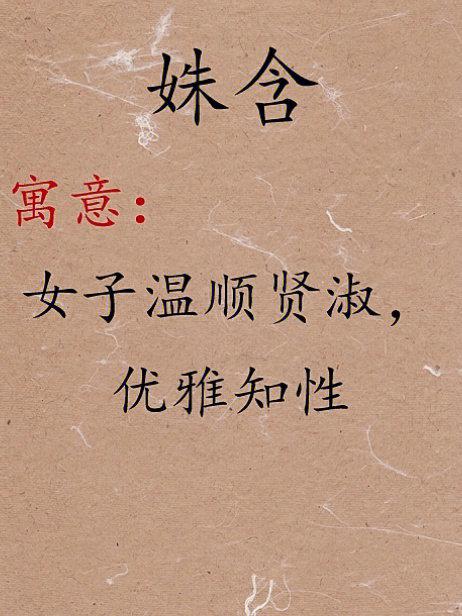 姝含
寓意：
女子温顺贤淑，
优雅知性